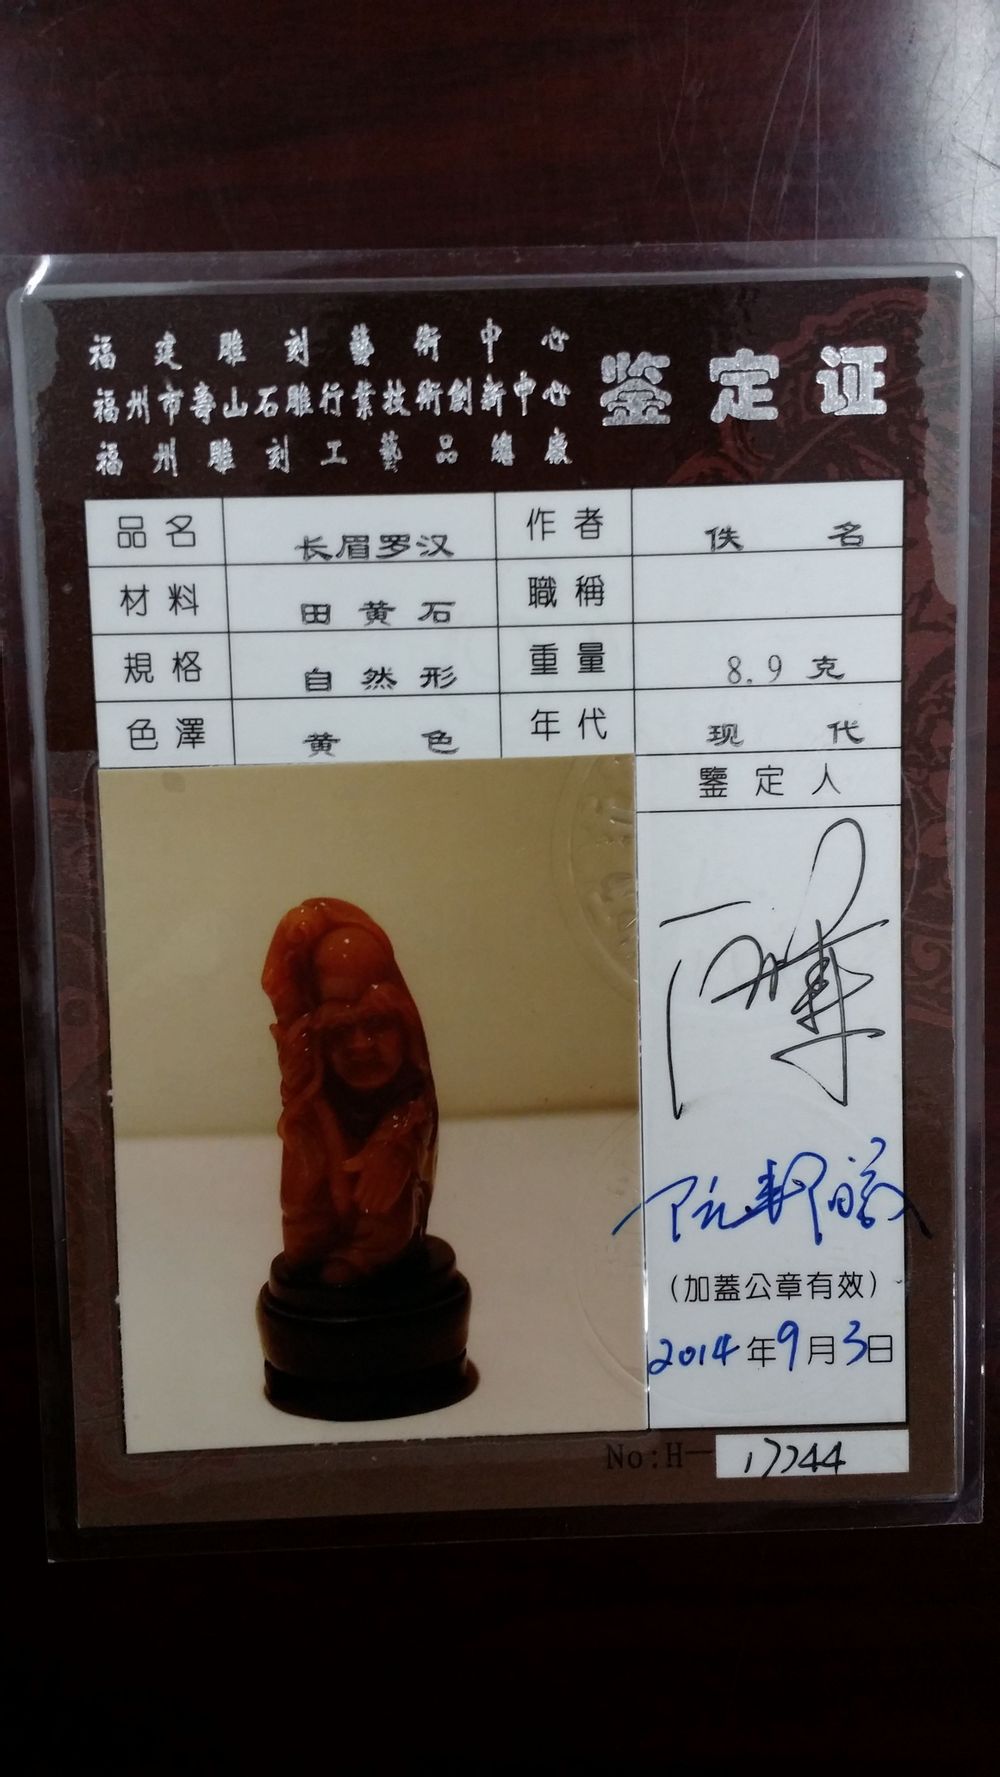 福建雕刻藝術中心
福州市寿山石雕行業技術創新中心
福州雕刻工藝品總廠
鉴定证
品名 长眉罗汉 作者 佚名
材料 田黄石 職稱
規格 自然形 重量 8.9克
色澤 黄色 年代 现代
鑒定人
(加蓋公章有效)
2014年9月3日
No:H—17744